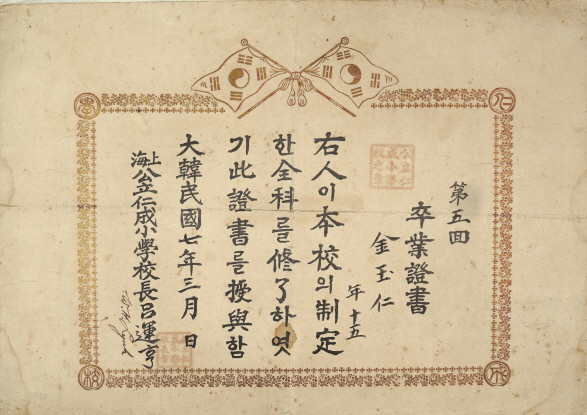 第五回
卒業證書
金玉仁
年十五
右人이本校의制定
한全科를修了하엿
기此證書를授與함
大韓民國七年三月 日
上海公立仁成小學校長呂運亨
仁
成
校